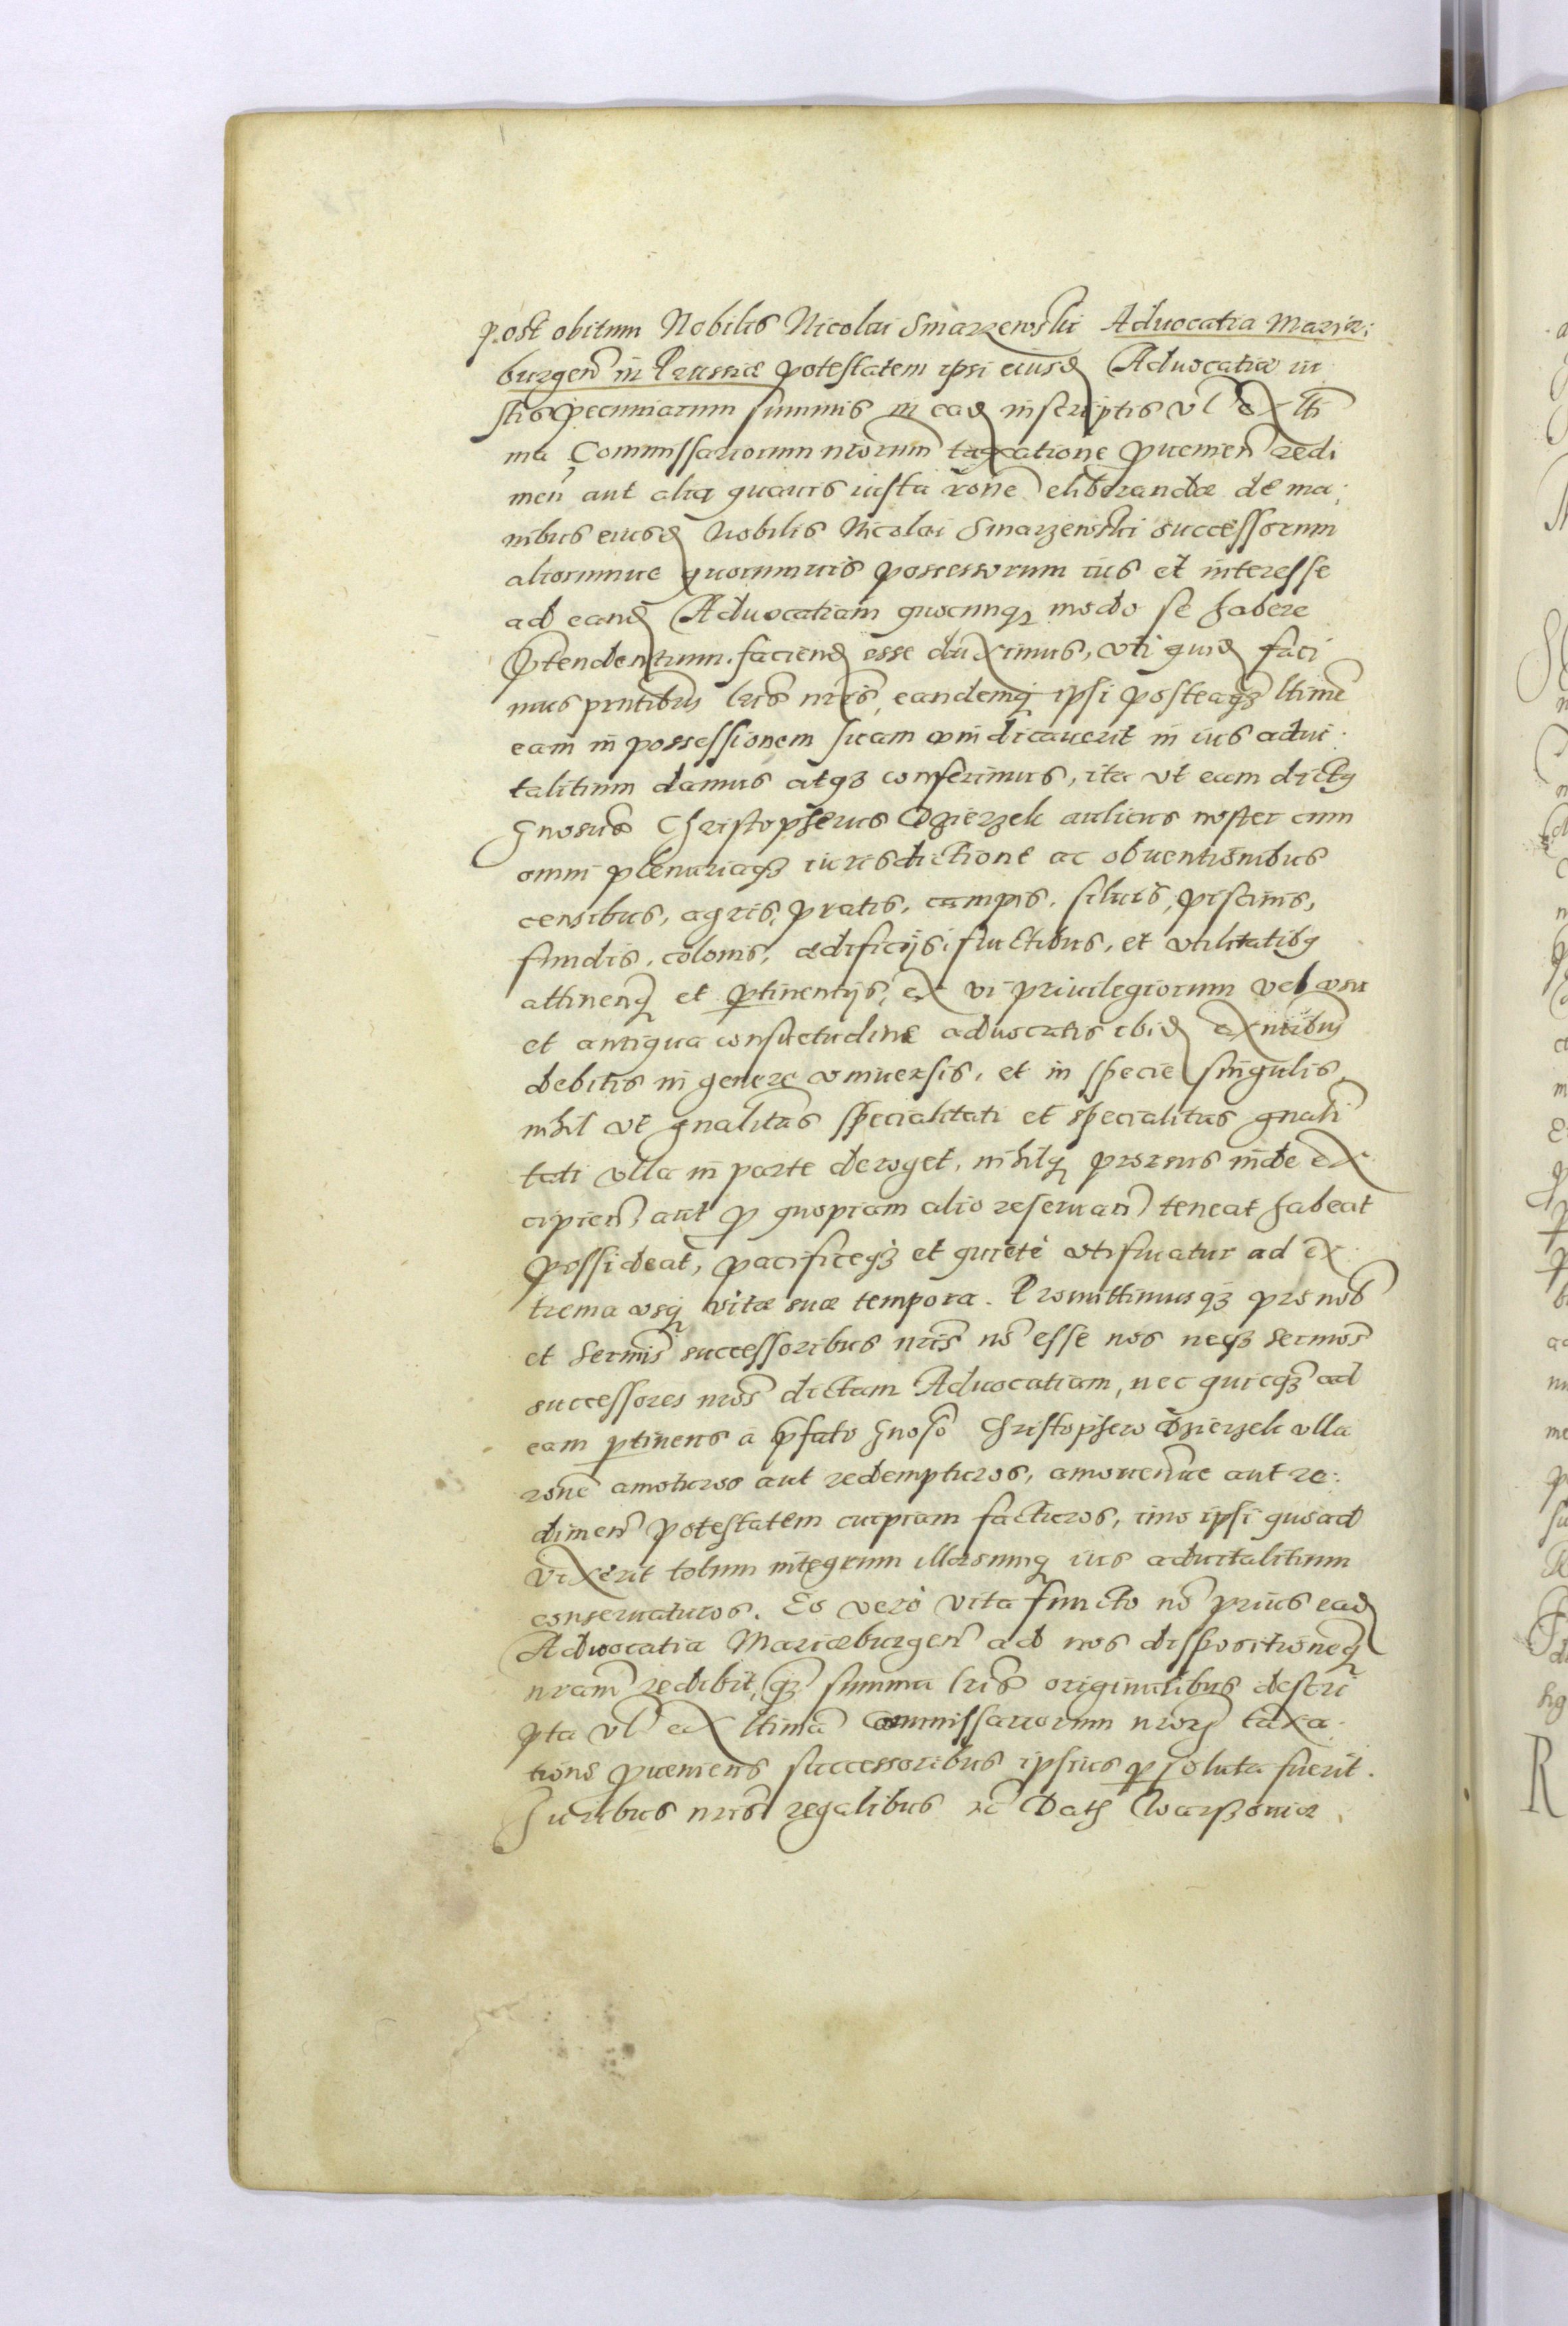 post obitum Nobilis Nicolai Smarzewski Advocatia Mariæ:
burgen̄ in Prussiæ potestatem ipsi eiusd Advocatiæ iu
stis pecuniarum summis in ead inscriptis vl̄ ex lti
ma Commissariorum nrorum taxatione puenien̄ redi
men̄ aut alia quavis iusta rone eliberandæ de ma:
nibus eiusd Nobilis Nicolai Smarzewski successorum
aliorumue quorumuis possessorum ius et interesse
ad eand Advocatiam quocunq modo se habere
ptendentium. faciend esse duximus, vti quid faci
mus pntibus lris nris, eandemq ipsi posteaq ltime
eam in possessionem suam vindicauerit in ius advi:
talitium damus atq conferimus, ita vt eam dictus
Gnosus Christopherus Dzierzek aulicus noster cum
omni plenariaq iurisdictione ac obuentionibus
censibus, agris, pratis, campis, siluis, piscinis,
fundis, colonis, ædificijs, fructibus, et vtilitatibq
attinen et ptinentijs, ex vi priuilegiorum vel vsu
et antiqua consuetudine advocatis ibid exntibus
debitis in genere vniuersis, et in specie singulis,
nihil vt gnalitas specialitati et specialitas gnali
tati vlla in parte deroget, nihilq prorsus inde ex
cipien, aut p quopiam alio reseruan teneat habeat
possideat, pacificeq et quietè vtifruatur ad ex
trema vsq vitæ suæ tempora. Promittimusq pro nob
et sermis successoribus nris no esse nos neq sermos
successores nros dictam Advocatiam, nec quicq ad
eam ptinens a pfato Gnoso Christophero Dzierzek vlla
rone amoturos aut redempturos, amouen̄ue aut re:
dimen̄ potestatem cuipiam facturos, imo ipsi quoad
vixerit totum integrum illæsumq ius aduitalitium
conseruaturos. Eo verò vita functo no prius ead
Advocatia Mariæburgen̄ ad nos dispositionemq
nram redibit, q summa lris originalibus descri
pta vl ex ltima Commissariorum nror taxa:
tione pueniens successoribus ipsius psoluta fuerit.
Iuribus nris regalibus rc Dat Warssouiæ